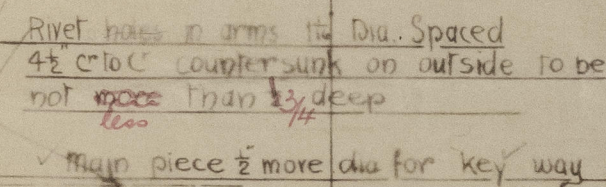 River holes in arms 1 1/16 Dia. Spaced
4½" C to C countersunk on outside to be
not more than 3/4 deep
less
✓ main piece ½" more dia for key way